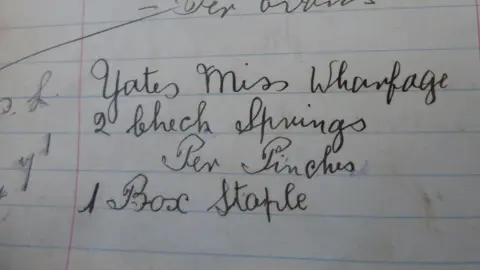 Per
Yates Miss Wharfage
2 Check Springs
Per Pinches
1 Box Staple